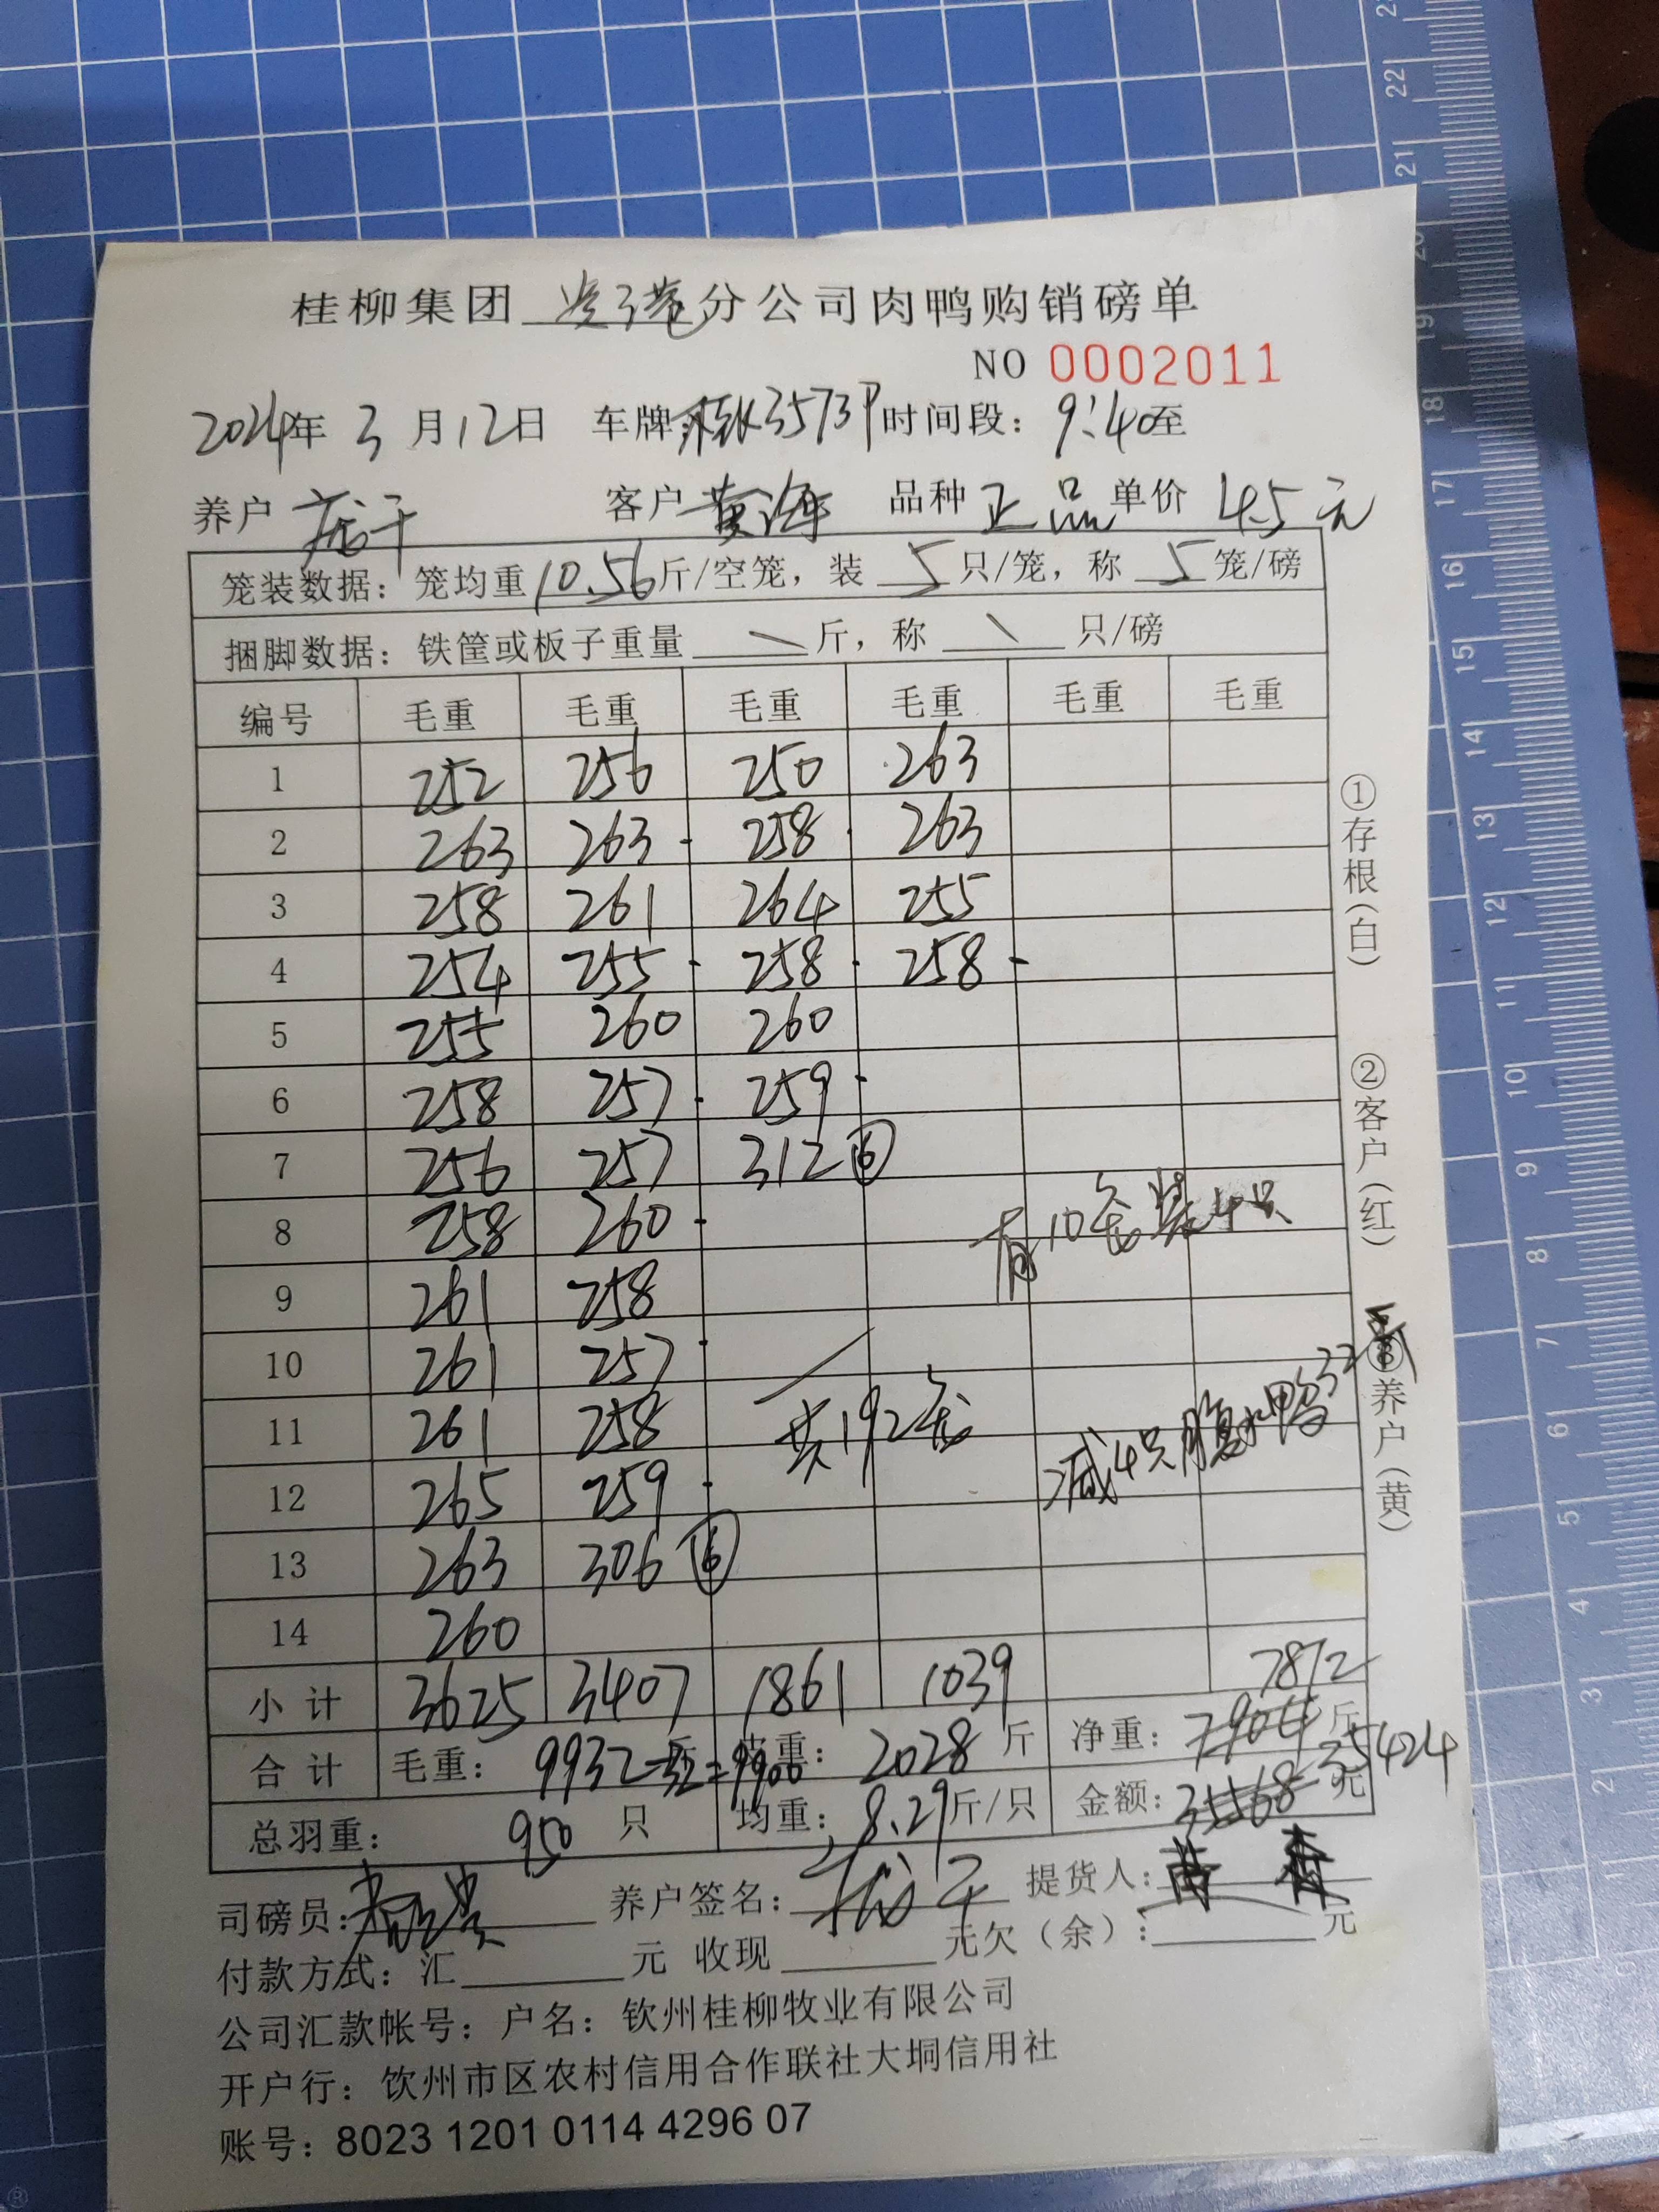 桂柳集团 贵港 分公司肉鸭购销磅单
NO 0002011
2024年 3 月 12 日 车牌 3573P 时间段：9:40 至
养户 客户 黄海 品种 正品 单价 4.5 元
笼装数据：笼均重 10.56 斤/空笼，装 5 只/笼，称 5 笼/磅
捆脚数据：铁筐或板子重量 \ 斤，称 \ 只/磅
编号 毛重 毛重 毛重 毛重 毛重 毛重
1 252 256 250 263
2 263 263 258 263
3 258 261 264 255
4 254 255 258 258
5 255 260 260
6 258 257 259
7 256 257 312 ⑥
8 258 260
有10笼装4只
9 261 258
10 261 257
11 261 258
共192笼
减4只腹水鸭32斤
12 265 259
13 263 306 ⑥
14 260
小计 3625 3407 1861 1039
7872
合计 毛重：9932-32=9900 皮重：2028 斤 净重：7904 斤
35424
总羽重：950 只 均重：8.29 斤/只 金额：35568 元
司磅员： 养户签名： 提货人：
付款方式：汇 元 收现 元欠（余）： 元
公司汇款帐号：户名：钦州桂柳牧业有限公司
开户行：钦州市区农村信用合作联社大垌信用社
账号：8023 1201 0114 4296 07
①存根（白）
②客户（红）
③养户（黄）